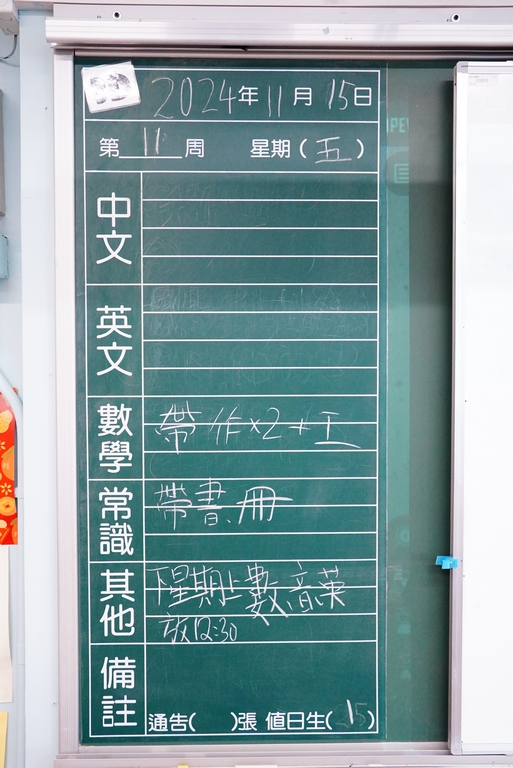 2024年11月15日
第11周 星期(五)
中文
英文
數學 帶作x2+工
常識 帶書、冊
其他 下星期上數、音、英
放12:30
備註 通告( )張 值日生(15)